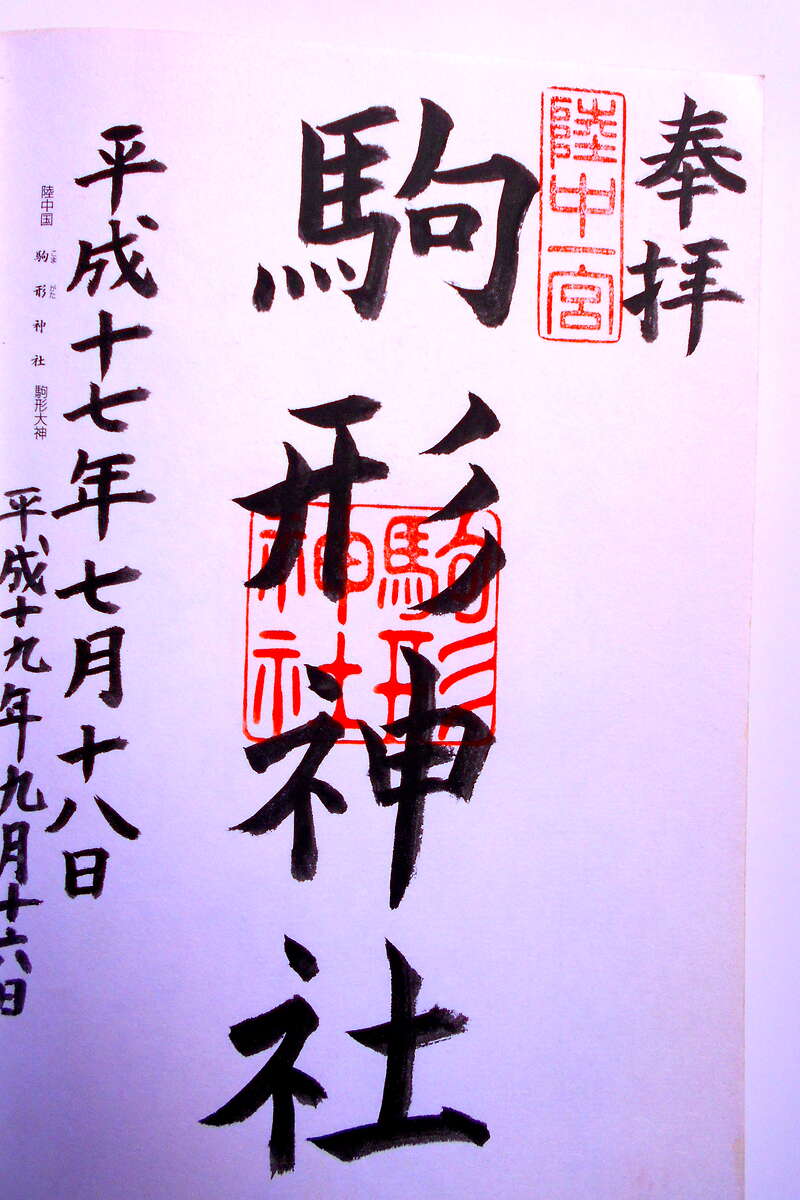 奉拝
陸中一宮
駒形神社
駒形神社
平成十七年七月十八日
陸中国 駒形神社 駒形大神
こま がた
平成十九年九月十六日